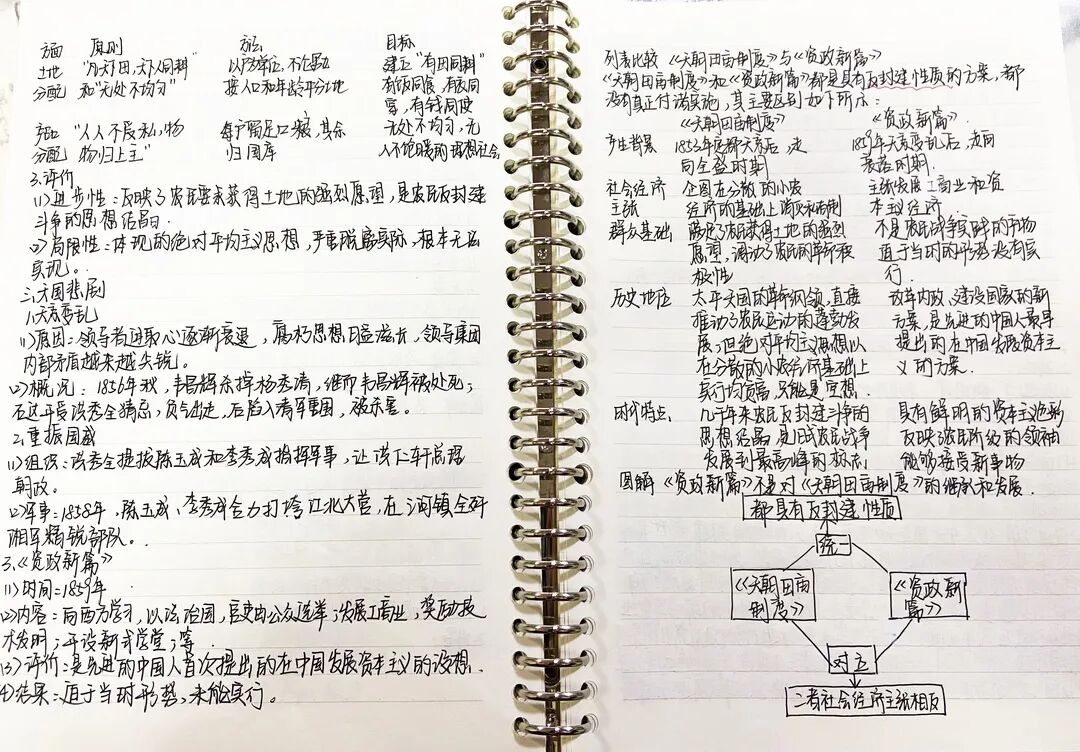 方面 原则 方法 目标
土地 "凡天下田,天下人同耕" 以户为单位,不论男妇 建立"有田同耕"
分配 和"无处不均匀" 按人口和年龄平分土地 有饭同食,有衣同
穿,有钱同使
产品 "人人不受私,物 每户留足口粮,其余 无处不均匀,无
分配 物归上主" 归国库 人不饱暖的理想社会
3.评价
(1)进步性:反映了农民要求获得土地的强烈愿望,是农民反封建
斗争的思想结晶。
(2)局限性:体现的绝对平均主义思想,严重脱离实际,根本无法
实现。
三、天国悲剧
1.天京变乱
(1)原因:领导者进取心逐渐衰退,腐朽思想日益滋长,领导集团
内部矛盾越来越尖锐。
(2)概况:1856年秋,韦昌辉杀掉杨秀清,继而韦昌辉被处死;
石达开受洪秀全猜忌,负气出走,后陷入清军重围,被杀害。
2.重振国威
(1)组织:洪秀全提拔陈玉成和李秀成指挥军事,让洪仁玕总理
朝政。
(2)军事:1858年,陈玉成、李秀成合力打垮江北大营,在三河镇全歼
湘军精锐部队。
3.《资政新篇》
(1)时间:1859年
(2)内容:向西方学习,以法治国,官吏由公众选举;发展工商业,奖励技
术发明;开设新式学堂;等
(3)评价:是先进的中国人首次提出的在中国发展资本主义的设想.
(4)结果:迫于当时形势,未能实行。
列表比较《天朝田亩制度》与《资政新篇》
《天朝田亩制度》和《资政新篇》都是具有反封建性质的方案,都
没有真正付诸实施,其主要区别如下所示:
《天朝田亩制度》 《资政新篇》
产生背景 1853年定都天京后,走 1859年天京变乱后,走向
向全盛时期 衰落时期.
社会经济 企图在分散的小农 主张发展工商业和资
主张 经济的基础上消灭私有制 本主义经济
群众基础 解决了农民获得土地的强烈 不是农民战争实践的产物
愿望,调动了农民的革命积 迫于当时的形势没有实
极性 行.
历史地位 太平天国的革命纲领,直接 改革内政、建设国家的新
推动了农民运动的蓬勃发 方案,是先进的中国人最早
展;但绝对平均主义思想以 提出的在中国发展资本主
在分散的小农经济基础上 义的方案.
实行均贫富,只能是空想.
时代特点 几千年来农民反封建斗争的 具有鲜明的资本主义色彩
思想结晶,是旧式农民战争 反映农民阶级的领袖
发展到最高峰的标志 能够接受新事物
图解《资政新篇》不是对《天朝田亩制度》的继承和发展.
都具有反封建性质
统一
《天朝田亩 《资政新
制度》 篇》
对立
二者社会经济主张相反